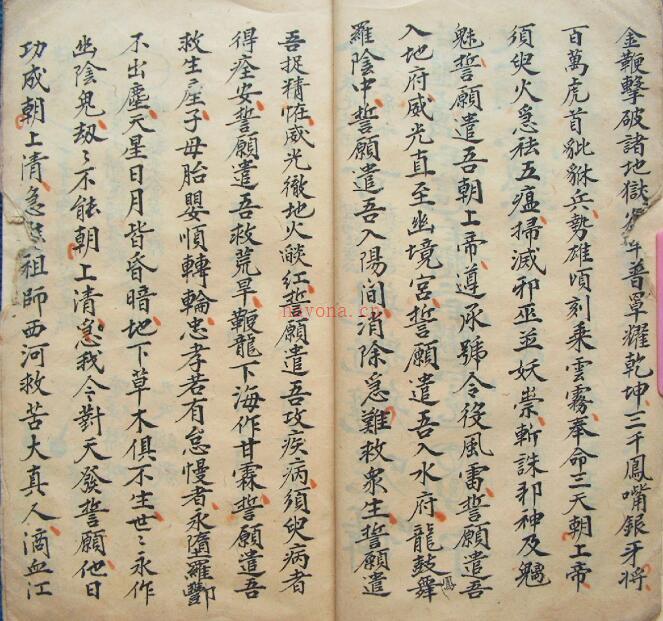 金鞭擊破諸地獄普罩耀乾坤三千鳳嘴銀牙將
百萬虎首貔貅兵勢雄頃刻乘雲霧奉命三天朝上帝
須臾火急祛五瘟掃滅邪巫並妖祟斬誅邪神及魍
魅誓願遣吾朝上帝遵承號令役風雷誓願遣吾
入地府威光直至幽境宮誓願遣吾入水府龍鼓鳳舞
羅陰中誓願遣吾入陽間消除急難救衆生誓願遣
吾捉精怪威光徹地火燄紅誓願遣吾攻疾病須臾病者
得痊安誓願遣吾救荒旱鞭龍下海作甘霖誓願遣吾
救生産子母胎嬰順轉輪忠孝若有怠慢者永墮羅酆
不出塵天星日月皆昏暗地下草木俱不生世〻永作
幽陰鬼刼〻不能朝上清急我今對天發誓願他日
功成朝上清急祖師西河救苦大真人滴血江
nayona.cn